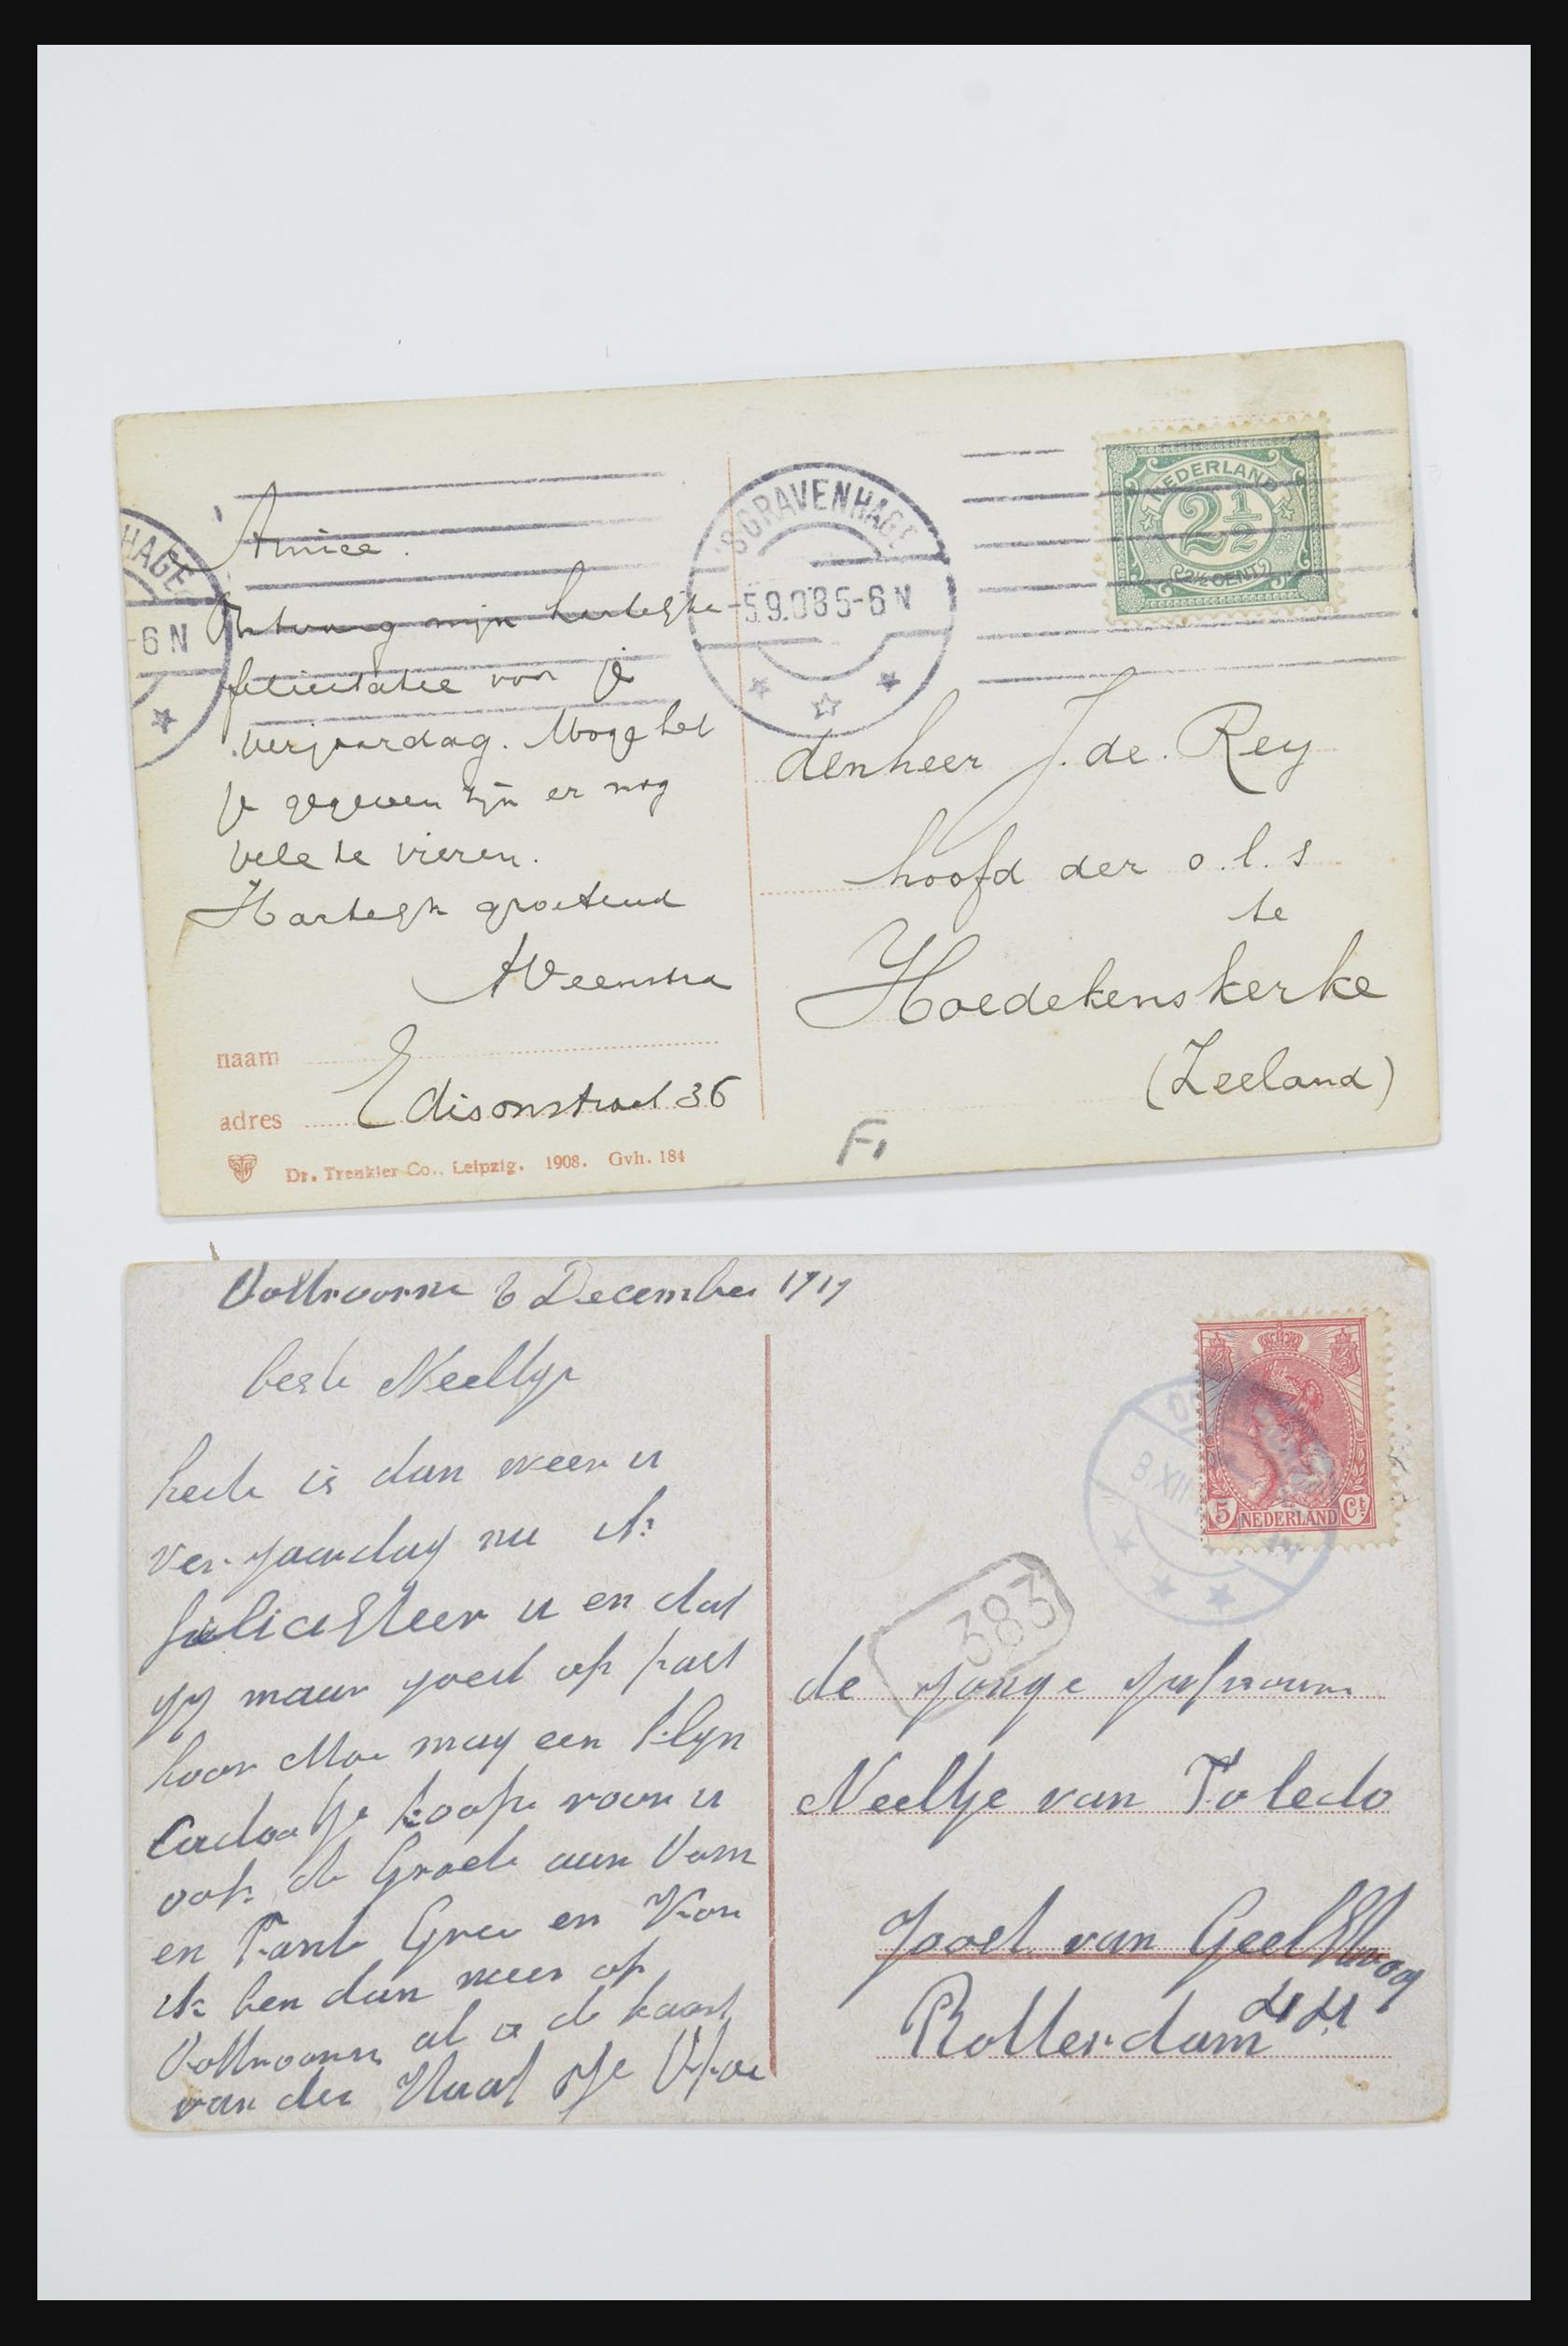 Amice.
Ontvang mijn hartelijke
felicitatie voor je
verjaardag. Moge het
je gegeven zijn er nog
vele te vieren.
Hartelijk groetend
AVeenstra
naam
adres Edisonstraat 36
Dr. Trenkler Co., Leipzig. 1908. Gvh. 184
HAGE
-6 N
'S GRAVENHAGE
-5.9.08 5-6 N
NEDERLAND
2½
2½ CENT
den heer J. de. Rey
hoofd der o.l.s
te
Hoedekenskerke
(Zeeland)
F,
6 December 1919
beste Neeltje
heete is dan weer u
verjaardag nu ik
felicisteer u en dat
gij maar goed op past
hoor Moe mag een klijn
cadootje koope voor u
ook de Groete aan Oom
en Tante Gree en
ik ben dan weer op
al a de kaart
van der
5 NEDERLAND Ct
8 XII
383
de jonge jufrouw
Neeltje van Toledo
Joost van Geelstraat
Rotterdam